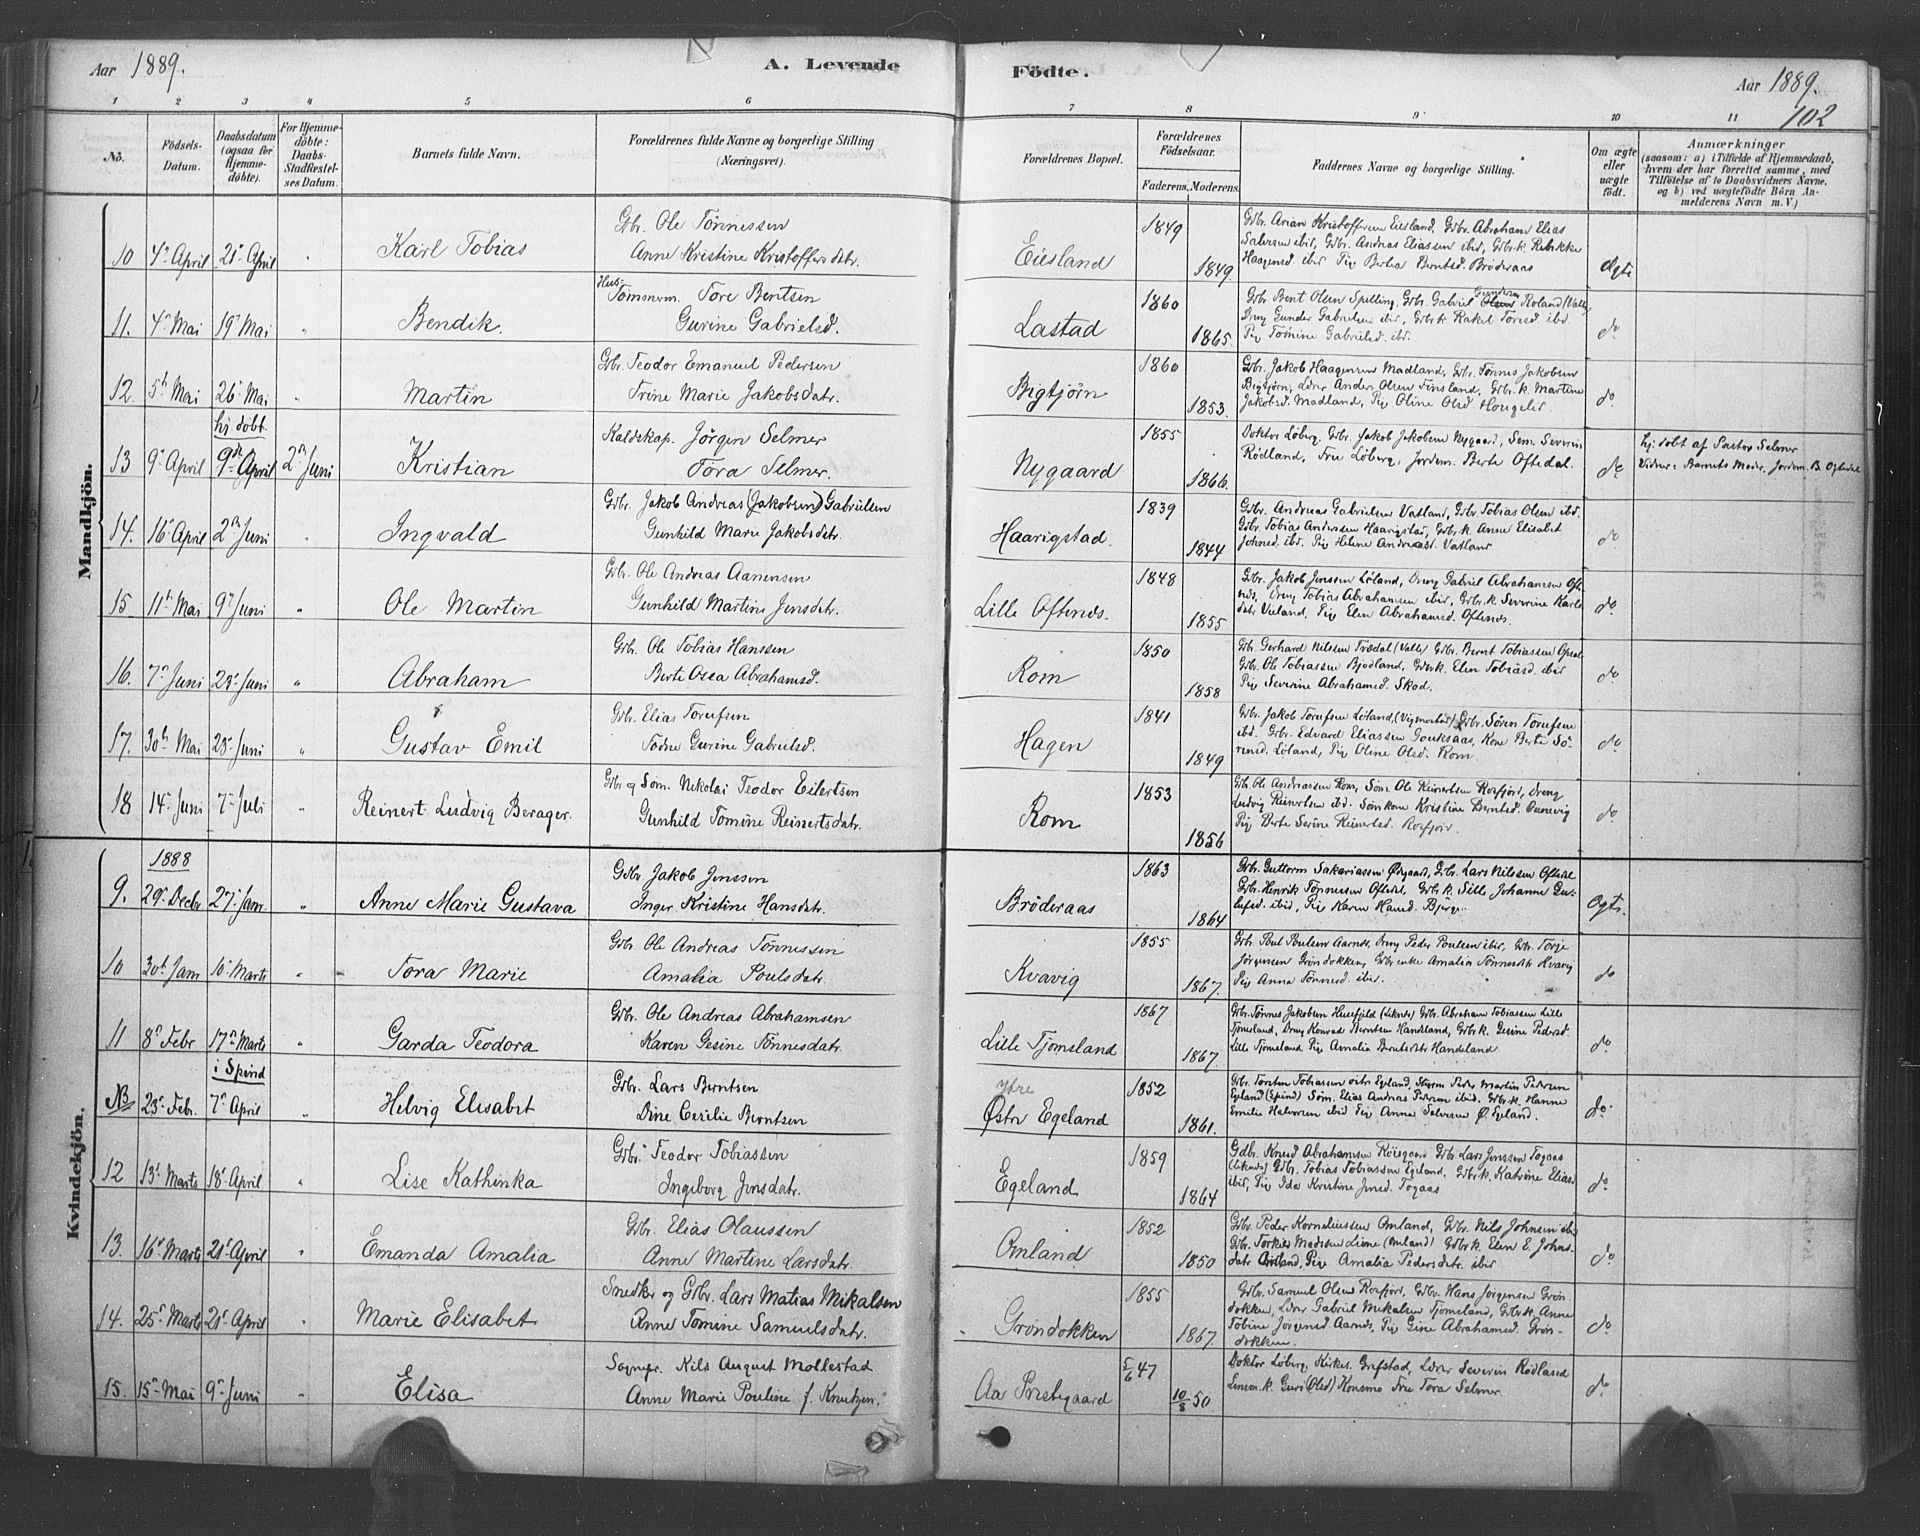 Aar 1889.
A. Levende
Födte.
Aar 1889.
102
1 2 3 4 5 6 7 8 9 10 11
No.
Födsels-Datum.
Daabsdatum (ogsaa for Hjemme-döbte).
For Hjemme-döbte: Daabs-Stadfæstel-ses Datum.
Barnets fulde Navn.
Forældrenes fulde Navne og borgerlige Stilling (Næringsvei).
Forældrenes Bopæl.
Forældrenes Födselsaar.
Faderens. Moderens.
Faddernes Navne og borgerlige Stilling.
Om ægte eller uægte födt.
Anmærkninger
(saasom: a) i Tilfælde af Hjemmedaab,
hvem der har forrettet samme, med
Tilföielse af to Daabsvidners Navne.
og b) ved uægtefödte Börn An-
melderens Navn m. V.)
Mandkjön.
10 4de April 21de April " Karl Tobias
Gbr. Ole Tönnessen
Anne Kristine Kristoffersdtr.
Eiesland 1849 1849
Gbr. Anian Kristoffersen Eiesland, Gbr. Abraham Elias
Salvesen ibid, Gbr. Andreas Eliassen ibid, Gbrk. Rebekke
Haagensd. ibid Pig Bertha Berntsd. Bröderaas
Ægte
11. 4de Mai 19de Mai " Bendik.
Hus-
Tömmerm. Tore Bentsen
Gurine Gabrielsd.
Lastad 1860 1865.
Gbr Bent Olsen Spilling, Gbr. Gabriel Gundersen Roland (Valle)
Dreng Gunder Gabrielsen ibid, Gbrk Rakel Toresd. ibd.
Pig Tomine Gabrielsd. ibd.
do
12. 5te Mai 26de Mai " Martin
Gbr. Teodor Emanuel Pedersen
Trine Marie Jakobsdatr.
Bigtjörn 1860 1853.
Gbr. Jakob Haagensen Madland, Gbr. Tönnes Jakobsen
Bigtjörn, Lörer Anders Olsen Finsland, Gbr. k. Martine
Jakobsd. Madland, Pig Oline Olsd
do
13 9de April
hj döbt.
9de April 2den Juni Kristian
Kaldskap. Jörgen Selmer
Tora Selmer.
Nygaard 1855 1866.
Doktor Löberg, Gbr. Jakob Jakobsen Nygaard, Sem. Severin
Rödland, Frue Löberg, Jordem. Berte Oftedal.
do
hj. döbt af Pastor Selmer
Vidner: Barnets Moder, Jordem. B. Oftedal
14. 16de April 2den Juni " Ingvald
Gbr. Jakob Andreas (Jakobsen) Gabrielsen
Gunhild Marie Jakobsdatr.
Haarigstad. 1839 1844
Gbr. Andreas Gabrielsen Vatland, Gbr. Tobias Olsen ibd.
Gbr. Tobias Andersen Haarigstad, Gbr. k. Anne Elisabet
Johnsd. ibd. Pig Helene Andreasd. Vatland
do
15 11te Mai 9de Juni " Ole Martin
Gbr. Ole Andreas Aanensen
Gunhild Martine Jensdatr.
Lille Oftenæs. 1848 1855
Gbr. Jakob Jenssen Löland, Dreng Gabriel Abrahamsen Ofte-
næs. Dreng Tobias Abrahamsen ibid, Gbr. k Severine Karls-
datr Vieland, Pig Elen Abrahamsd. Oftenæs.
do
16. 7de Juni 23de Juni " Abraham
Gbr. Ole Tobias Hanssen
Berte Osea Abrahamsd.
Rom 1850 1858
Gbr. Gerhard Nilsen Trædal (Valle) Gbr. Bernt Tobiassen Opsal
Gbr. Ole Tobiassen Bjodland, Gbrk. Elen Tobiasd. ibid
Pig Severine Abrahamsd. Skod.
do
17. 30te Mai 23de Juni " Gustav Emil
Gbr. Elias Torufsen
Todne Gurine Gabrielsd.
Hagen 1841 1849
Gbr. Jakob Torufsen Löland, (Vigmostad) Gbr. Sören Torufsen
ibd. Gbr. Edvard Eliassen Gouksaas, Kone Berte Sö-
rensd. Löland, Pig Oline Olsd. Rom
do
18 14de Juni 7de Juli " Reinert Ludvig Berager.
Gbr og Söm. Nikolai Teodor Eilertsen
Gunhild Tomine Reinertsdatr.
Rom 1853 1856
Gbr. Ole Andreassen Rom, Söm Ole Reinertsen Rosfjort, Dreng
Ludvig Reinertsen ibd. Sömkone Kristine Berntsd.
Pig Berte Serine Reinertsd. Rosfjor.
do
Kvindekjön.
1888
9. 29de Decbr 27de Janr " Anne Marie Gustava
Gdbr Jakob Jenssen
Inger Kristine Hansdatr.
Bröderaas 1863 1864
Gbr. Guttorm Sakariassen Ödgaard, Gbr. Lars Nilssen Oftedl
Gbr. Henrik Tönnessen Oftedl, Gbr k. Sille Johanne Gu-
ibid, Pig Karen Hansd. Bjerge.
Ægte.
10 30te Janr 10de Marts " Tora Marie
Gbr. Ole Andreas Tönnessen
Amalia Poulsdatr.
Kvavig 1855 1867.
Gbr. Poul Poulsen Aarnds, Dreng Peder Poulsen ibid, Gbr. Torje
Jörgensen Gröndokken, Gbr enke Amalia Tönnesdtr Kvavig
Pig Anna Tönnesd. ibid.
do
11 8de Febr 17de Marts " Garda Teodora
Gbr. Ole Andreas Abrahamsen
Karen Gesine Tönnesdatr.
Lille Tjömsland 1867 1867.
Gbr. Tönnes Jakobsen (Liknes) Gbr. Abraham Tobiassen Lille
Tjömsland, Dreng Konrad Berntsen Handeland, Gbr k. Gesine Pedersd.
Lille Tjömsland Pig Amalia Berntsdtr Handeland
do.
NB 23de Febr.
i Spind
7de April " Helvig Elisabet
Gbr. Lars Berntsen
Dine Cecilie Berntsen
Ytre
Östr Egeland 1852 1861.
Gbr. Torsten Tobiassen östr Egeland, Styrm Peder Martin Pedersen
Egeland (Spind) Söm. Elias Andreas Pedersen ibid. Gbr. k. Hanne
Emilie Halvorsen ibid Pig Anna Salvesen Ö. Egeland.
do.
12 13de Marts 18de April " Lise Kathinka
Gbr. Teodor Tobiassen
Ingeborg Jensdatr.
Egeland 1859 1864
Gdbr. Knud Abrahamsen Röisgaard Gbr Lars Jenssen Togaas
(Liknes) Gbr. Tobias Tobiassen Egeland, Gbr k. Katrine Eliasd.
ibid, Pig Ida Kristine Jensd. Togaas
do
13. 16de Marts 21de April " Emanda Amalia
Gbr. Elias Olaussen
Anne Martine Larsdatr.
Omland 1852 1850
Gbr. Peder Korneliussen Omland, Gbr. Nils Johnsen ibd
Gbr. Torkies Madssen Liene (Omland) Gbr k. Elen E. Johns-
datr Omland, Pig Amalia Pedersdatr. ibid
do
14. 25de Marts 21de April " Marie Elisabet
Snedker og Gbr. Lars Matias Mikalsen
Anne Tomine Samuelsdatr.
Gröndokken 1855 1867.
Gbr. Samuel Olsen Rosfjort, Gbr. Hans Jörgensen Grön-
dokken, Lörer Gabriel Mikalsen Tjömsland, Gbr k. Anne
Tobine Jörgensd Aarnds, Pig Gine Abrahamsd. Grön-
dokken.
do
15. 15de Mai 9de Juni Elisa
Sognepr. Nils August Mollestad
Anne Marie Pouline f. Knutzen.
Aa Prestegaard 5/6 47 10/8 50
Doktor Löberg, Kirkes. Grefstad, Lörer Severin Rödland
Lensm. k. Guri (Olsd) Konsmo Frue Tora Selmer.
do.